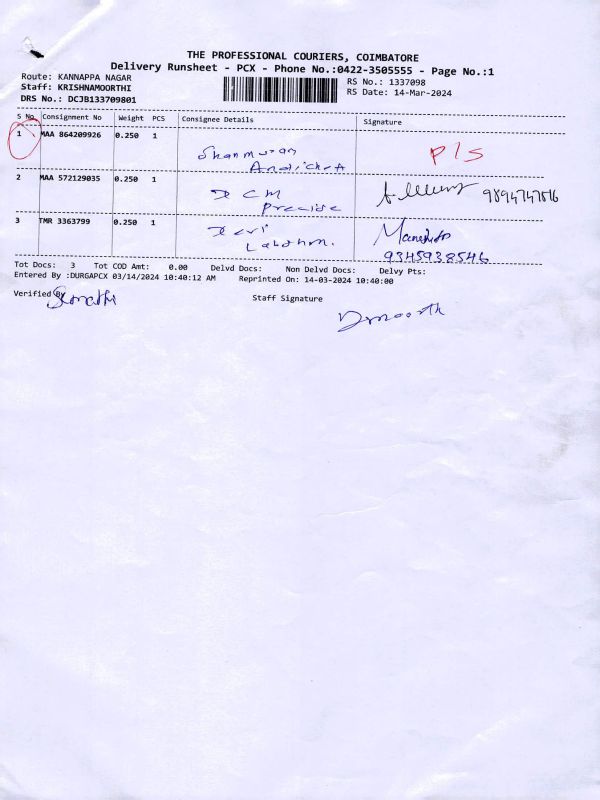 THE PROFESSIONAL COURIERS, COIMBATORE
Delivery Runsheet - PCX - Phone No.:0422-3505555 - Page No.:1
Route: KANNAPPA NAGAR
RS No.: 1337098
Staff: KRISHNAMOORTHI
RS Date: 14-Mar-2024
DRS No.: DCJB133709801
S No. Consignment No Weight PCS Consignee Details Signature
1 MAA 864209926 0.250 1 Shanmugam P/S
2 MAA 572129035 0.250 1 D CM
Precise
3 TMR 3363799 0.250 1 Devi
Lakshmi.
9345938546
Tot Docs: 3 Tot COD Amt: 0.00 Delvd Docs: Non Delvd Docs: Delvy Pts:
Entered By :DURGAPCX 03/14/2024 10:40:12 AM Reprinted On: 14-03-2024 10:40:00
Verified By
Staff Signature